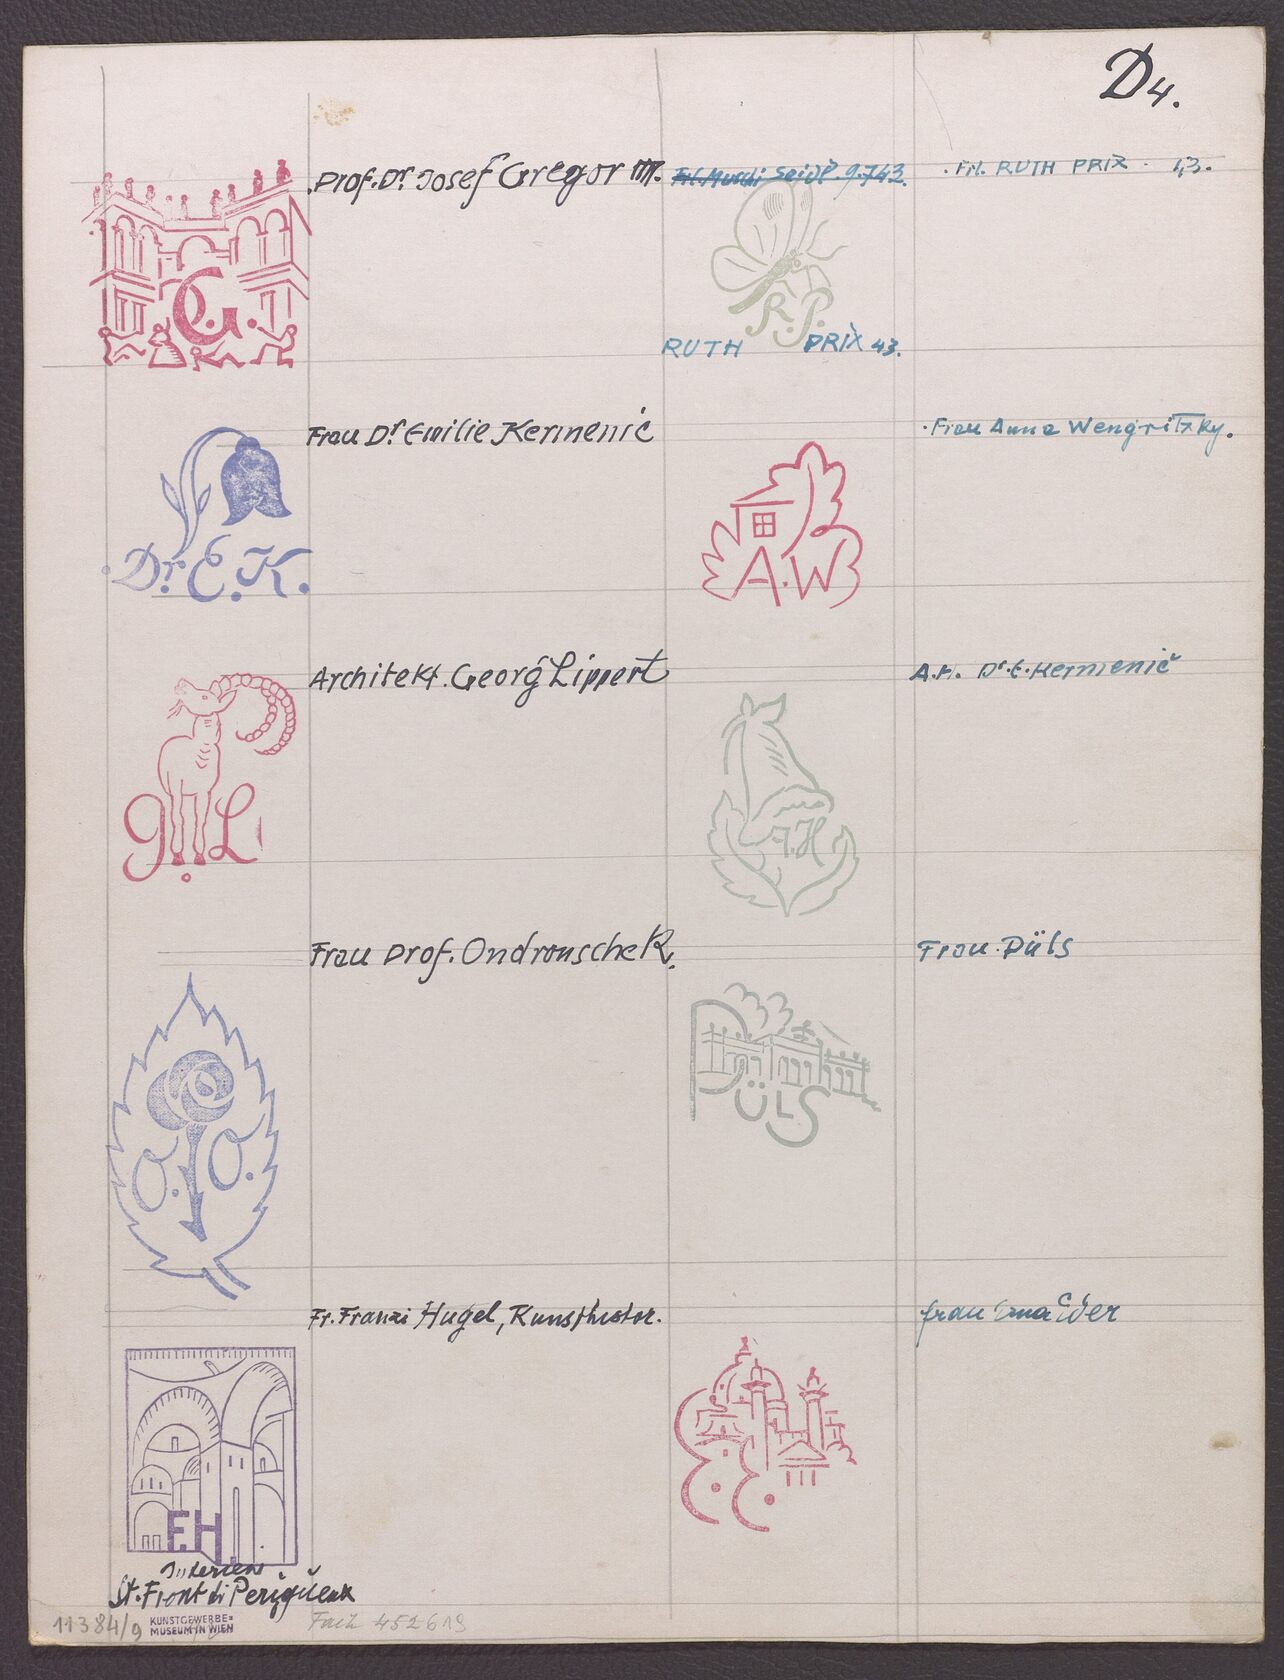 D4.
Prof. Dr. Josef Gregor
Frl. Murdi Seidl 9.743.
. Frl. RUTH PRIX . 43.
G.
R.P.
RUTH PRIX 43.
Frau Dr. Emilie Kermenić
. Frau Anna Wengritzky.
Dr. E. K.
A.W
Architekt. Georg Lippert
A.H. Dr. E. Kermenič
G.L
A.H
Frau Prof. Ondrouschek.
Frau Püls
O.O.
PÜLS
Fr. Franzi Hugel, Kunsthistor.
frau Erna Eder
E.E.
F.H.
Interieur
St. Front di Perigueux
11384/9 KUNSTGEWERBE=
MUSEUM IN WIEN
452619